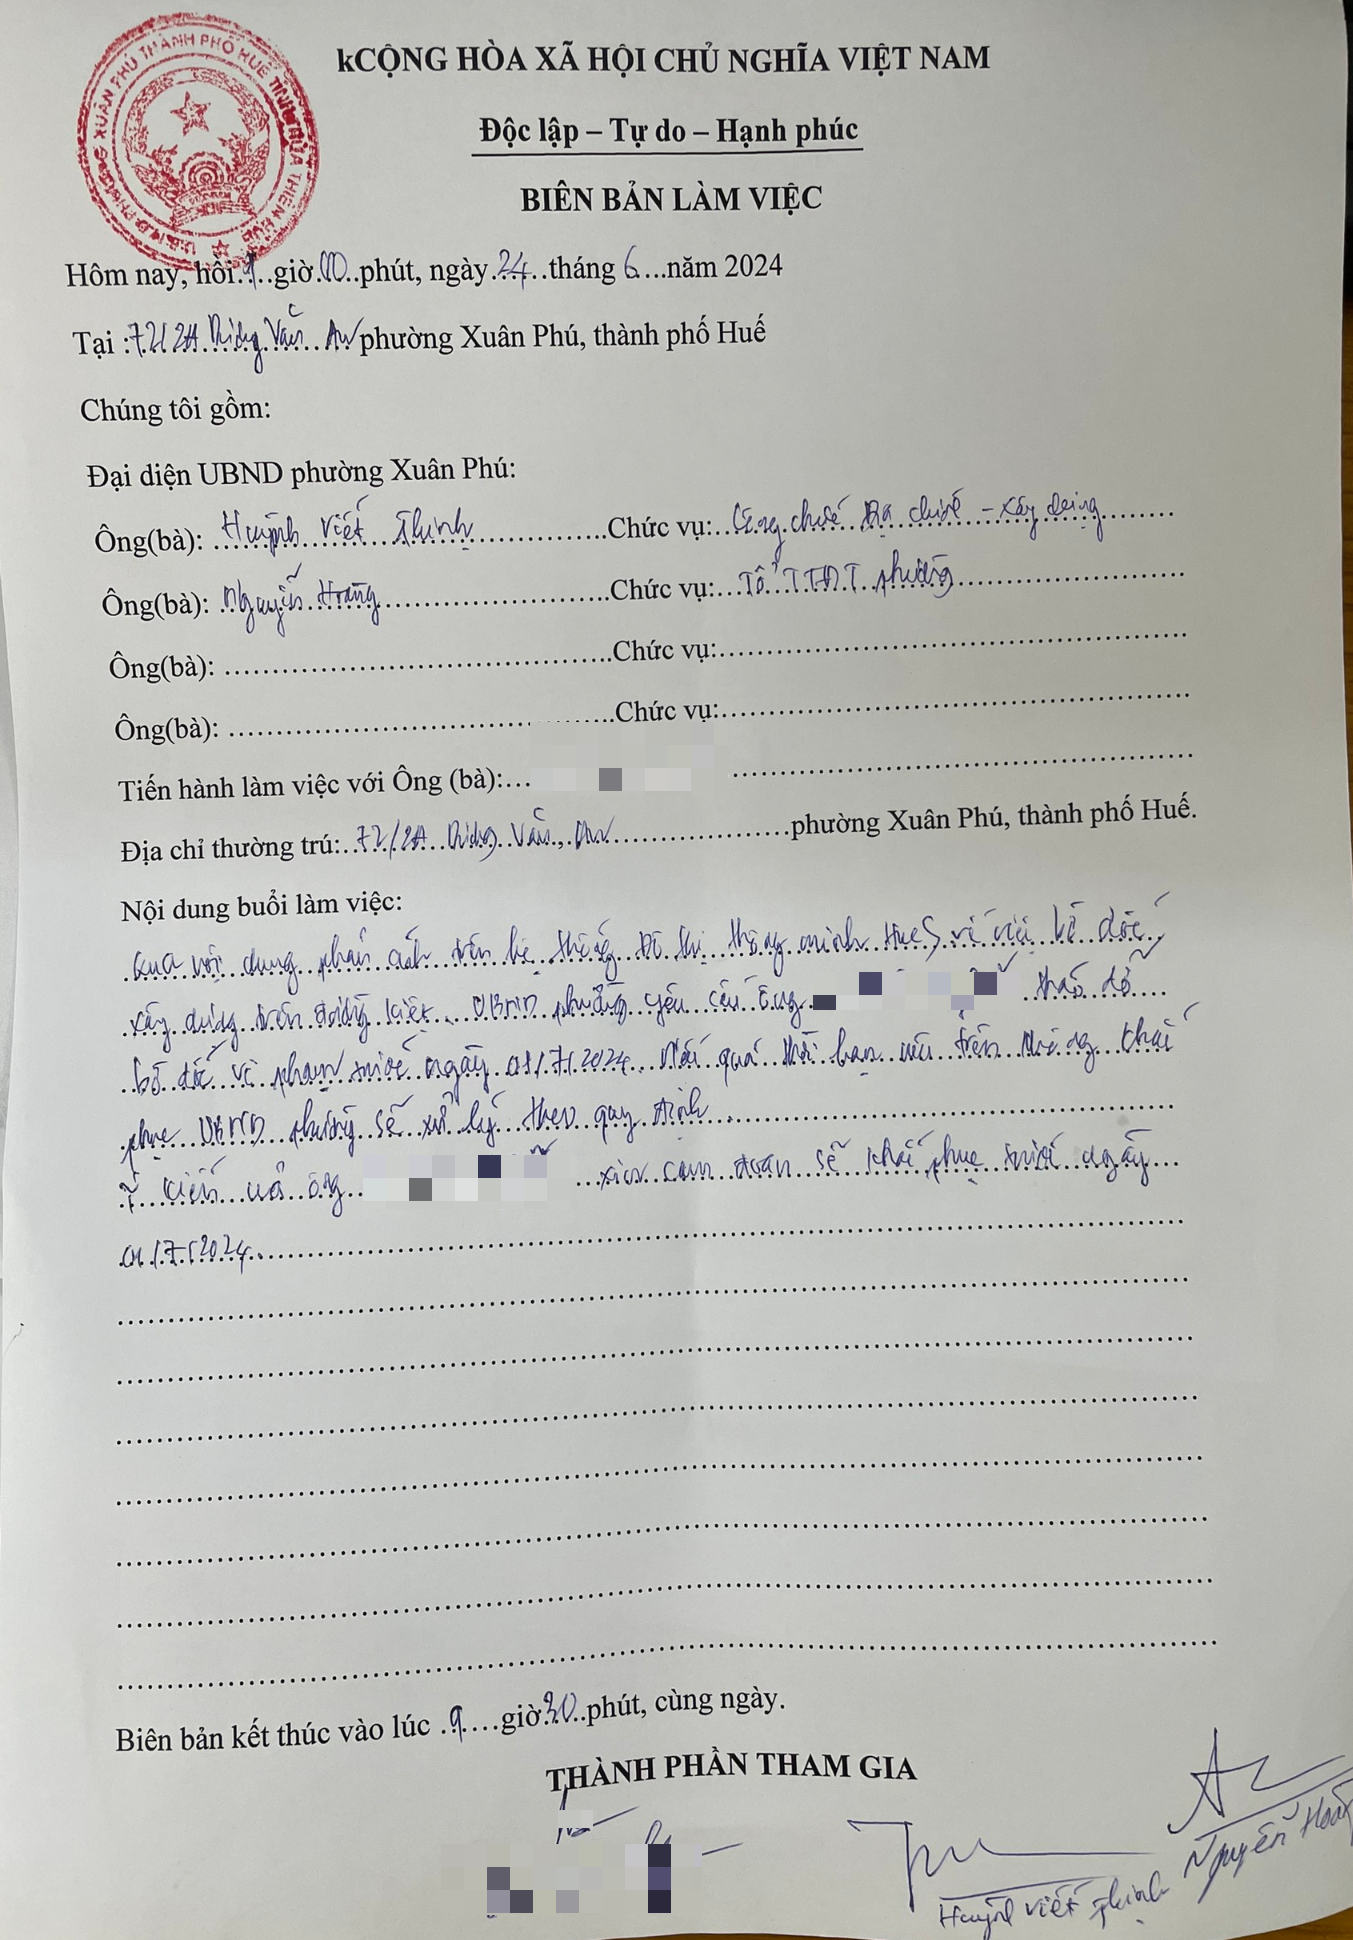 U.B.N.D PHƯỜNG XUÂN PHÚ THÀNH PHỐ HUẾ TỈNH THỪA THIÊN HUẾ
kCỘNG HÒA XÃ HỘI CHỦ NGHĨA VIỆT NAM
Độc lập – Tự do – Hạnh phúc
BIÊN BẢN LÀM VIỆC
Hôm nay, hồi 9 giờ 00 phút, ngày 24 tháng 6 năm 2024
Tại : 72/2A Dương Văn An phường Xuân Phú, thành phố Huế
Chúng tôi gồm:
Đại diện UBND phường Xuân Phú:
Ông(bà): Huỳnh Viết Thịnh Chức vụ: Công chức Địa chính - Xây dựng
Ông(bà): Nguyễn Hoàng Chức vụ: Tổ TTĐT phường
Ông(bà): Chức vụ:
Ông(bà): Chức vụ:
Tiến hành làm việc với Ông (bà):
Địa chỉ thường trú: 72/2A Dương Văn An phường Xuân Phú, thành phố Huế.
Nội dung buổi làm việc:
Qua nội dung phản ánh trên hệ thống Đô thị thông minh HueS về việc bờ dốc,
xây dựng trên đường kiệt. UBND phường yêu cầu Ông tháo dỡ
bờ dốc vi phạm trước ngày 01/7/2024. Nếu quá thời hạn nêu trên không khắc
phục UBND phường sẽ xử lý theo quy định.
Ý kiến của ông xin cam đoan sẽ khắc phục trước ngày
01/7/2024.
Biên bản kết thúc vào lúc 9 giờ 30 phút, cùng ngày.
THÀNH PHẦN THAM GIA
Huỳnh Viết Thịnh
Nguyễn Hoàng